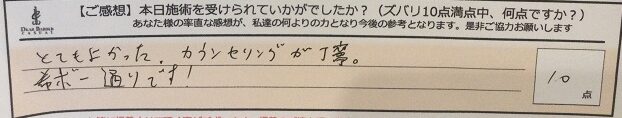 【ご感想】本日施術を受けられていかがでしたか？（ズバリ10点満点中、何点ですか？）
あなた様の率直な感想が、私達の何よりの力となり今後の参考となります。是非ご協力お願いします
とてもよかった。カウンセリングが丁寧。
希ボー通りです！
10
点